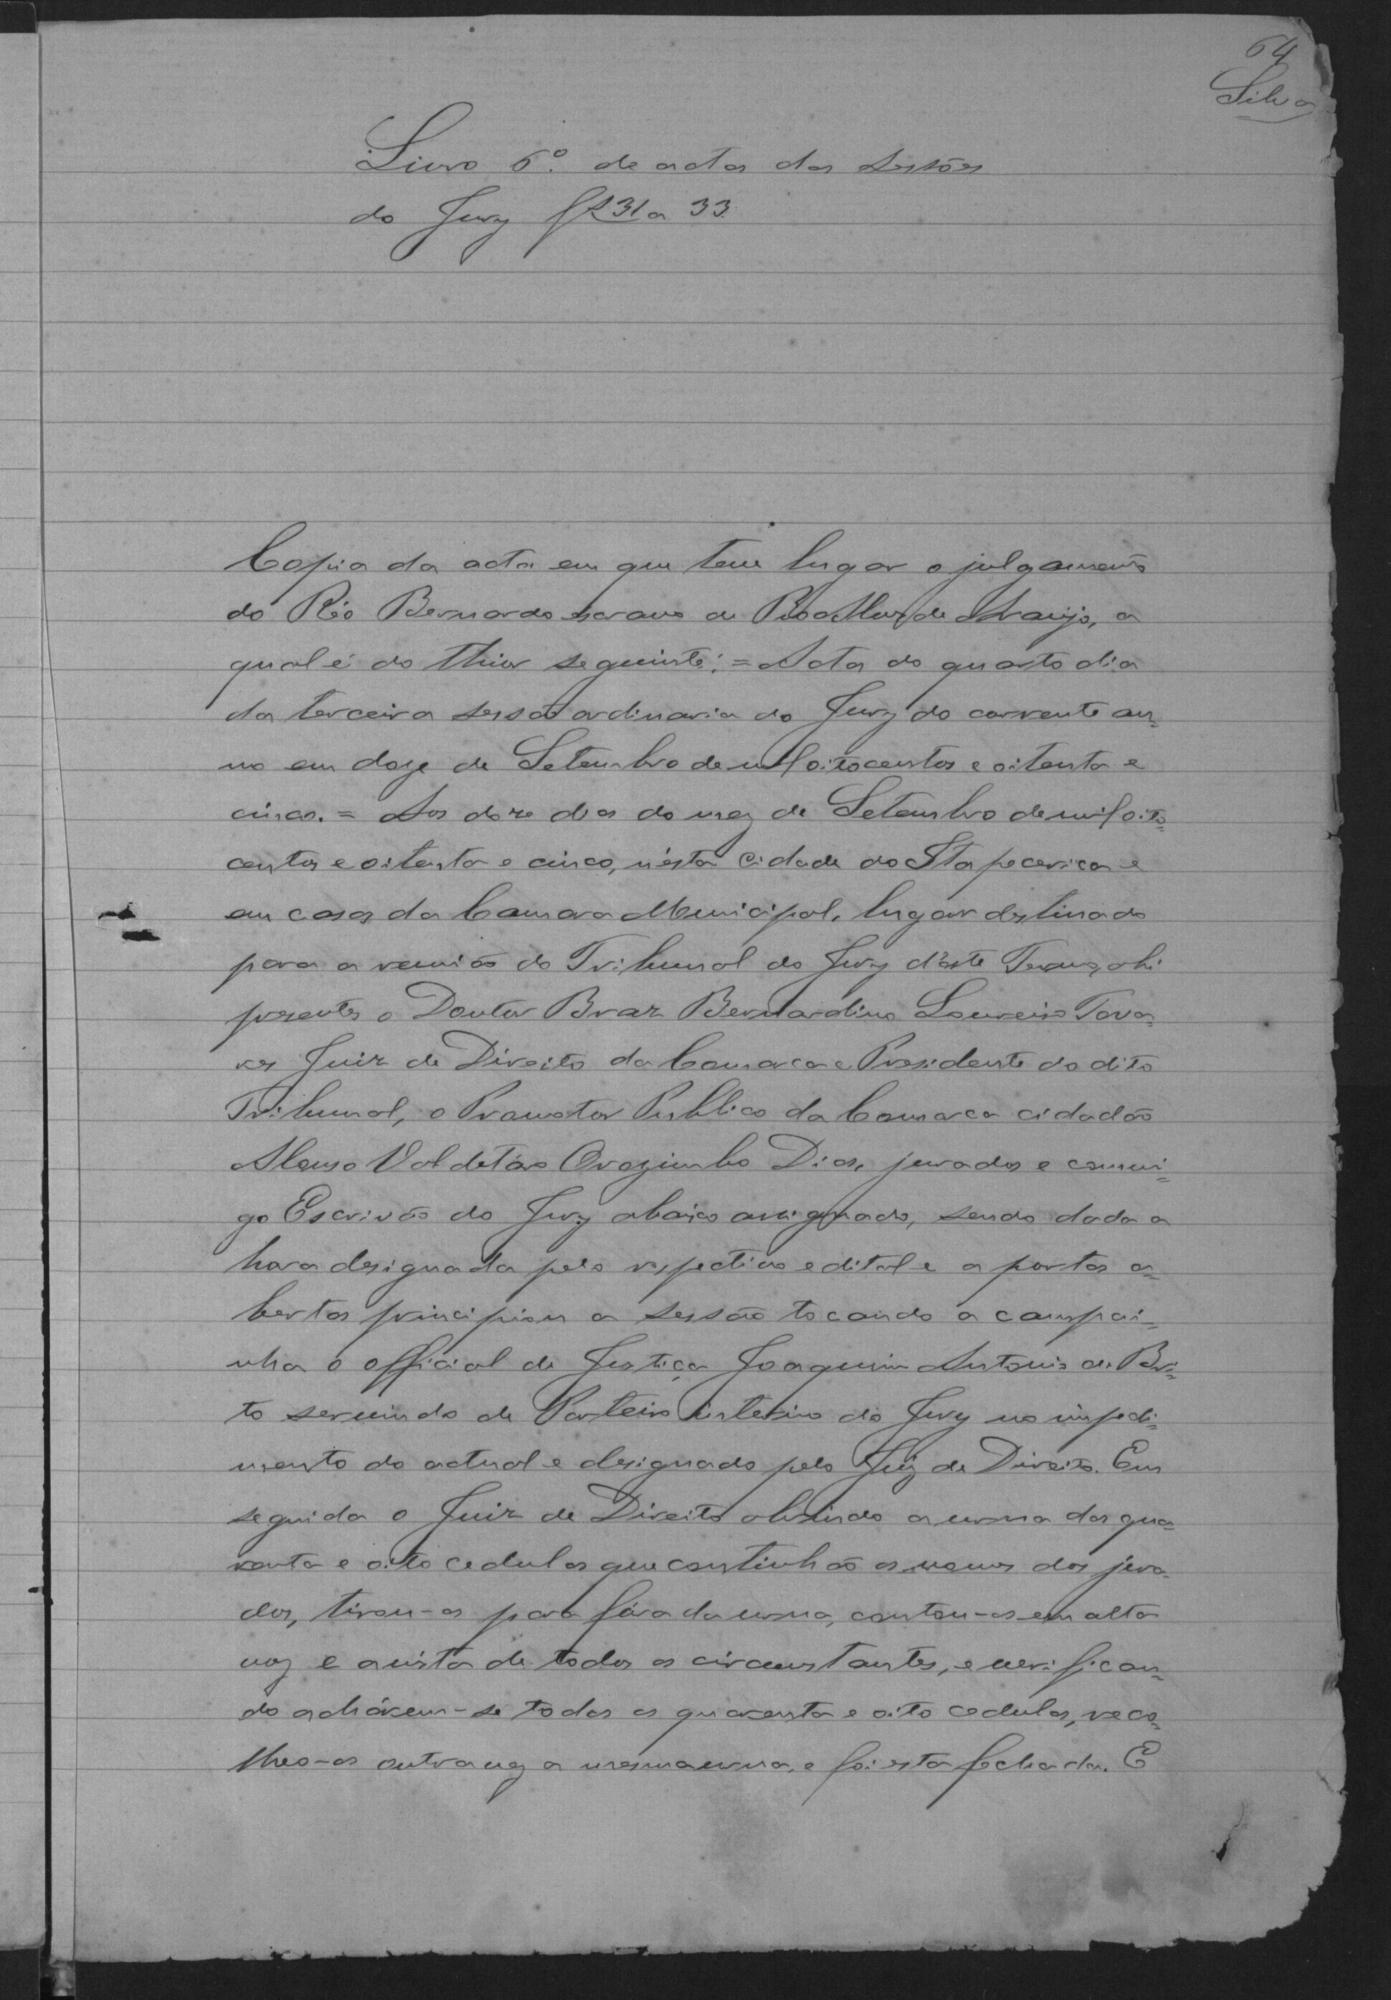 64
Silva
Livro 6º. de actas das sessões
do Jury fls 31 a 33
Copia da acta em que teve lugar o julgamento
do Réo Bernardo escravo de de Araujo, a
qual é do theor seguinte: = Acta do quarto dia
da terceira sessão ordinaria do Jury do corrente an=
no em doze de Setembro de mil oitocentos e oitenta e
cinco. = Aos doze dias do mez de Setembro de mil oito=
centos e oitenta e cinco, n'ésta Cidade do Itapecerica e
em casa da Camara Municipal, lugar destinado
para a reunião do Tribunal do Jury d'este Termo, ahi
presentes o Doutor Braz Bernardino Loureiro Tava=
res Juiz de Direito da Comarca e Presidente do dito
Tribunal, o Promotor Publico da Comarca cidadão
Valdetáro Orozimbo Dias, jurados e commi=
go Escrivão do Jury abaixo assignado, sendo dada a
hora designada pelo respectivo edital e a portas a=
bertas principiou a sessão tocando a campai=
nha o official de Justiça Joaquim Antonio de Bri=
to servindo de Porteiro interino do Jury no impedi=
mento do actual e designado pelo Juiz de Direito. Em
seguida o Juiz de Direito abrindo a urna das qua=
renta e oito cedulas que continhão os nomes dos jura=
dos, tirou-as para fóra da urna, contou-as em alta
voz e a vista de todos os circunstantes, e verifican=
do acharem-se todas as quarenta e oito cedulas, reco=
lheo-as outra vez a mesma urna, e foi esta fechada. E